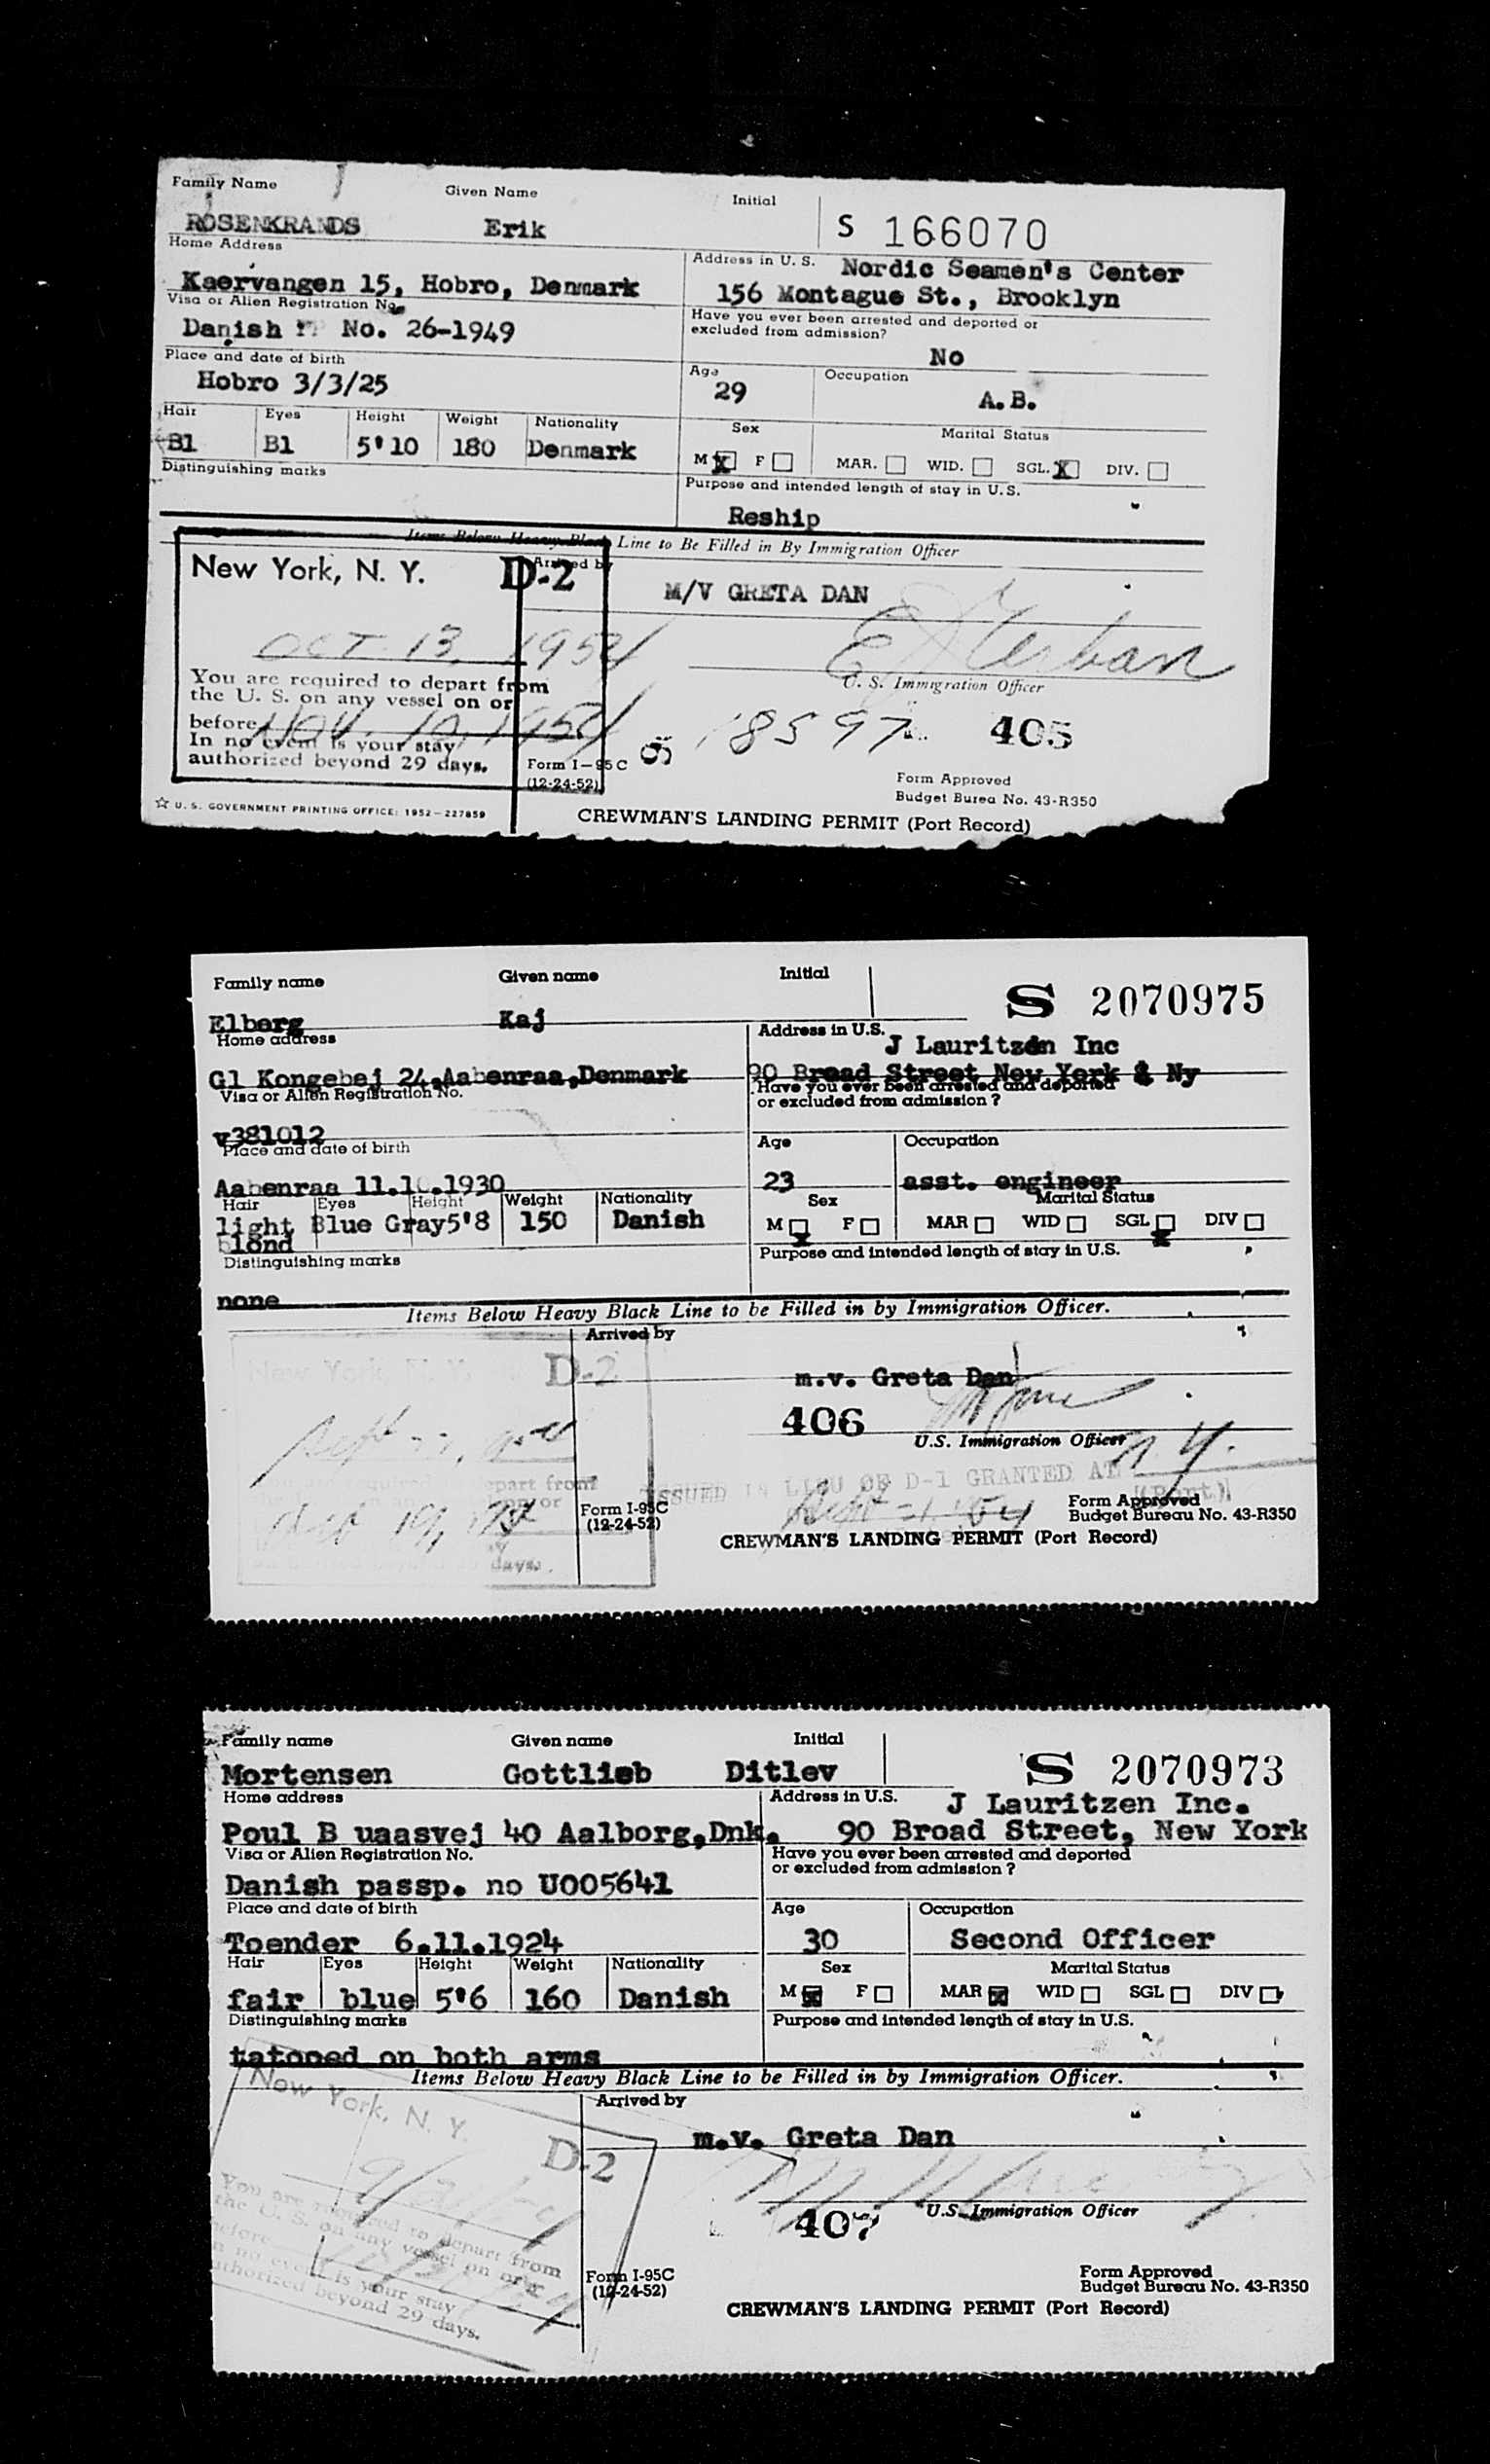 Family Name Given Name Initial
ROSENKRANDS Erik S 166070
Home Address Address in U. S. Nordic Seamen's Center
Kaervangen 15, Hobro, Denmark 156 Montague St., Brooklyn
Visa or Alien Registration No. Have you ever been arrested and deported or
excluded from admission?
Danish No. 26-1949 No
Place and date of birth Age Occupation
Hobro 3/3/25 29 A.B.
Hair Eyes Height Weight Nationality Sex Marital Status
Bl Bl 5'10 180 Denmark M X F MAR. WID. SGL. X DIV.
Distinguishing marks Purpose and intended length of stay in U.S.
Reship
Items Below Heavy Black Line to Be Filled in By Immigration Officer
New York, N. Y. D-2 Arrived by
M/V GRETA DAN
OCT. 13, 1954
You are required to depart from U. S. Immigration Officer
the U. S. on any vessel on or
before Nov. 10, 1954 18597 405
In no event is your stay
authorized beyond 29 days. Form I-95 C Form Approved
(12-24-52) Budget Burea No. 43-R350
☆ U. S. GOVERNMENT PRINTING OFFICE: 1952-227859 CREWMAN'S LANDING PERMIT (Port Record)
Family name Given name Initial
S 2070975
Elberg Kaj
Home address Address in U.S. J Lauritzen Inc
Gl Kongebej 24,Aabenraa,Denmark 90 Broad Street New York & Ny
Visa or Alien Registration No. Have you ever been arrested and deported
or excluded from admission ?
v381012
Place and date of birth Age Occupation
Aabenraa 11.10.1930 23 asst. engineer
Hair Eyes Height Weight Nationality Sex Marital Status
light Blue Gray 5'8 150 Danish M X F MAR WID SGL X DIV
blond
Distinguishing marks Purpose and intended length of stay in U.S.
none
Items Below Heavy Black Line to be Filled in by Immigration Officer.
Arrived by
New York, N. Y. D-2 m.v. Greta Dan
406
U.S. Immigration Officer
ISSUED IN LIEU OF D-1 GRANTED AT N. Y.
(Port)
depart from
Form I-95C Form Approved
(12-24-52) Budget Bureau No. 43-R350
CREWMAN'S LANDING PERMIT (Port Record)
days.
Family name Given name Initial
Mortensen Gottlieb Ditlev S 2070973
Home address Address in U.S. J Lauritzen Inc.
Poul B uaasvej 40 Aalborg,Dnk. 90 Broad Street, New York
Visa or Alien Registration No. Have you ever been arrested and deported
or excluded from admission ?
Danish passp. no U005641
Place and date of birth Age Occupation
Toender 6.11.1924 30 Second Officer
Hair Eyes Height Weight Nationality Sex Marital Status
fair blue 5'6 160 Danish M X F MAR X WID SGL DIV
Distinguishing marks Purpose and intended length of stay in U.S.
tatooed on both arms
Items Below Heavy Black Line to be Filled in by Immigration Officer.
New York, N. Y. Arrived by
D-2 m.v. Greta Dan
U.S. Immigration Officer
407
You are required to depart from
the U. S. on any vessel on or
before
In no event is your stay
authorized beyond 29 days.
Form I-95C Form Approved
(12-24-52) Budget Bureau No. 43-R350
CREWMAN'S LANDING PERMIT (Port Record)